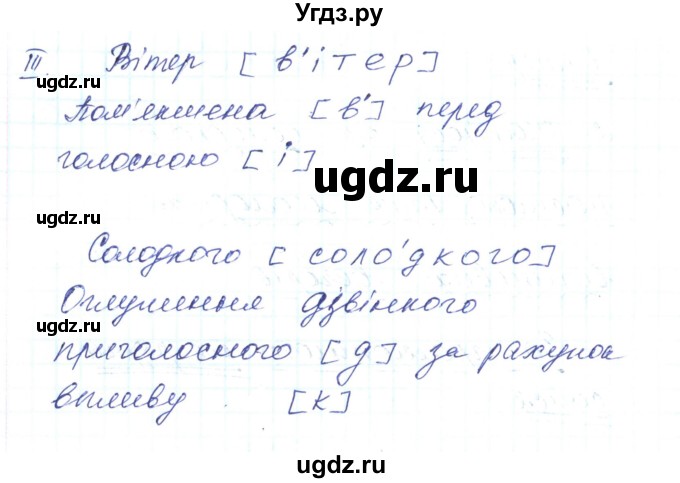 Угдз.ру
III. Вітер [в'ітер]
ugdz.ru
Пом'якшена [в'] перед
ugdz.ru
голосною [і]
ugdz.ru
ugdz.ru
Солодкого [соло́дкого]
Оглушення дзвінкого
ugdz.ru
приголосного [д] за рахунок
впливу [к]
ugdz.ru
ugdz.ru